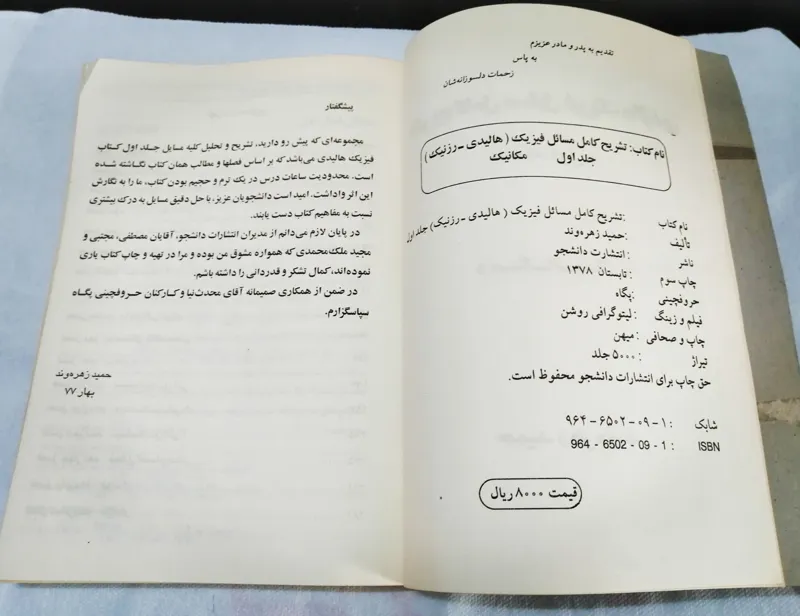 تقدیم به پدر و مادر عزیزم
به پاس
زحمات دلسوزانه‌شان
نام کتاب: تشریح کامل مسائل فیزیک ( هالیدی ـ رزنیک )
جلد اول مکانیک
نام کتاب : تشریح کامل مسائل فیزیک ( هالیدی ـ رزنیک) جلد اول
تألیف : حمید زهره‌وند
ناشر : انتشارت دانشجو
چاپ سوم : تابستان ۱۳۷۸
حروفچینی : پگاه
فیلم و زینگ : لیتوگرافی روشن
چاپ و صحافی : میهن
تیراژ : ۵۰۰۰ جلد
حق چاپ برای انتشارات دانشجو محفوظ است.
شابک : ۱-۰۹-۶۵۰۲-۹۶۴
ISBN : 964 - 6502 - 09 - 1
قیمت ۸۰۰۰ ریال
پیشگفتار
مجموعه‌ای که پیش رو دارید، تشریح و تحلیل کلیه مسایل جلد اول کتاب
فیزیک هالیدی می‌باشد که بر اساس فصلها و مطالب همان کتاب نگاشته شده
است. محدودیت ساعات درس در یک ترم و حجیم بودن کتاب، ما را به نگارش
این اثر واداشت. امید است دانشجویان عزیز، با حل دقیق مسایل به درک بیشتری
نسبت به مفاهیم کتاب دست یابند.
در پایان لازم می‌دانم از مدیران انتشارات دانشجو، آقایان مصطفی، مجتبی و
مجید ملک‌محمدی که همواره مشوق من بوده و مرا در تهیه و چاپ کتاب یاری
نموده‌اند، کمال تشکر و قدردانی را داشته باشم.
در ضمن از همکاری صمیمانه آقای محدث‌نیا و کارکنان حروفچینی پگاه
سپاسگزارم.
حمید زهره‌وند
بهار ۷۷